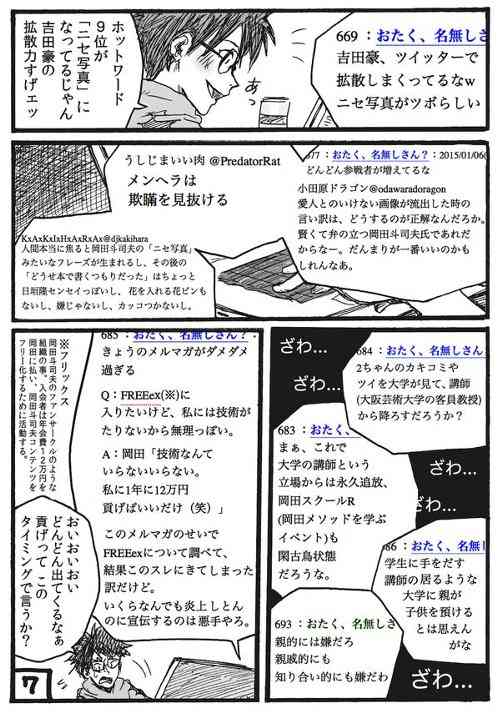 ホットワード
9位が
「ニセ写真」に
なってるじゃん
吉田豪の
拡散力すげェッ
あっ
669 ：おたく、名無しさ
吉田豪、ツイッターで
拡散しまくってるなw
ニセ写真がツボらしい
677 ：おたく、名無しさん？：2015/01/06(
どんどん参戦者が増えてるな
小田原ドラゴン@odawaradoragon
愛人とのいけない画像が流出した時の
言い訳は、どうするのが正解なんだろか。
賢くて弁の立つ岡田斗司夫氏であれだ
からなー。だんまりが一番いいのかも
しれんなあ。
うしじまいい肉 @PredatorRat
メンヘラは
欺瞞を見抜ける
KxAxKxIxHxAxRxAx@djkakihara
人間本当に焦ると岡田斗司夫の「ニセ写真」
みたいなフレーズが生まれるし、その後の
「どうせ本で書くつもりだった」はちょっと
日垣隆センセイっぽいし、花を入れる花ビンも
ないし、嫌じゃないし、カッコつかないし。
ざわ…
684 ：おたく、名無しさん
2ちゃんのカキコミや
ツイを大学が見て、講師
(大阪芸術大学の客員教授)
から降ろすだろうか？
ざわ…
683 ：おたく、
まぁ、これで
大学の講師という
立場からは永久追放、
岡田スクールR
(岡田メソッドを学ぶ
イベント)も
閑古鳥状態
だろうな。
ざわ…
ざわ…
86 ：おたく、名無しさん
学生に手をだす
講師の居るような
大学に親が
子供を預ける
とは思えん
がな
693 ：おたく、名無しさ
親的には嫌だろ
親戚的にも
知り合い的にも嫌だわ
ざわ…
685 ：おたく、名無しさん？：
きょうのメルマガがダメダメ
過ぎる
Q：FREEex(※)に
入りたいけど、私には技術が
たりないから無理っぽい。
A：岡田「技術なんて
いらないいらない。
私に1年に12万円
貢げばいいだけ（笑）」
このメルマガのせいで
FREEexについて調べて、
結果このスレにきてしまった
訳だけど。
いくらなんでも炎上しとん
のに宣伝するのは悪手やろ。
※フリックス
岡田斗司夫のファンサークルのような
組織の事。入会者は年会費12万円を
岡田に払い、岡田斗司夫コンテンツを
フリー化するために活動する。
おいおいおい
どんどん出てくるなぁ
貢げって この
タイミングで言うか？
7